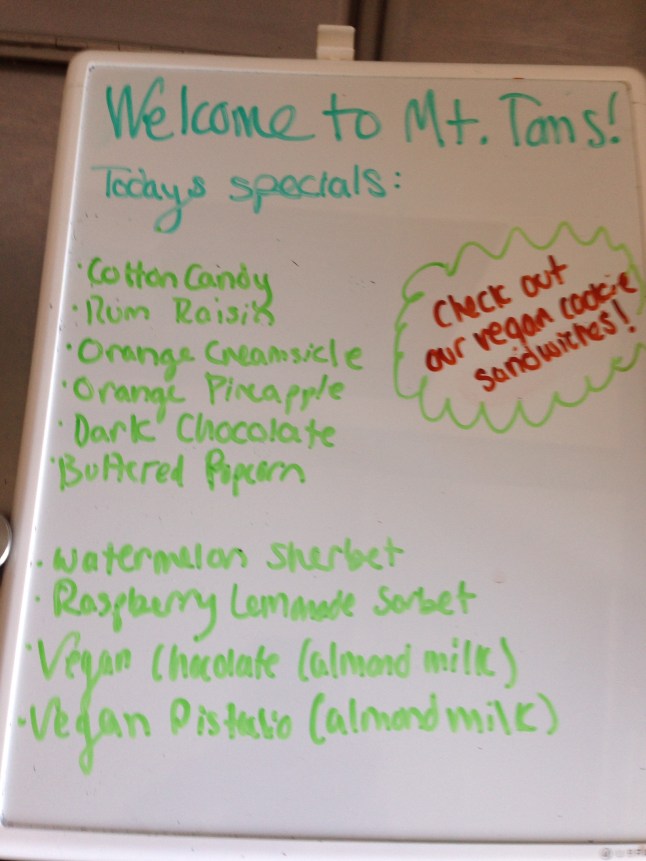 Welcome to Mt. Toms!
Todays specials:
· Cotton Candy
· Rum Raisin
· Orange Creamsicle
· Orange Pineapple
· Dark Chocolate
· Buttered Popcorn
Check out
our vegan cookie
sandwiches!
· Watermelon Sherbet
· Raspberry Lemonade Sorbet
· Vegan Chocolate (almond milk)
· Vegan Pistachio (almond milk)